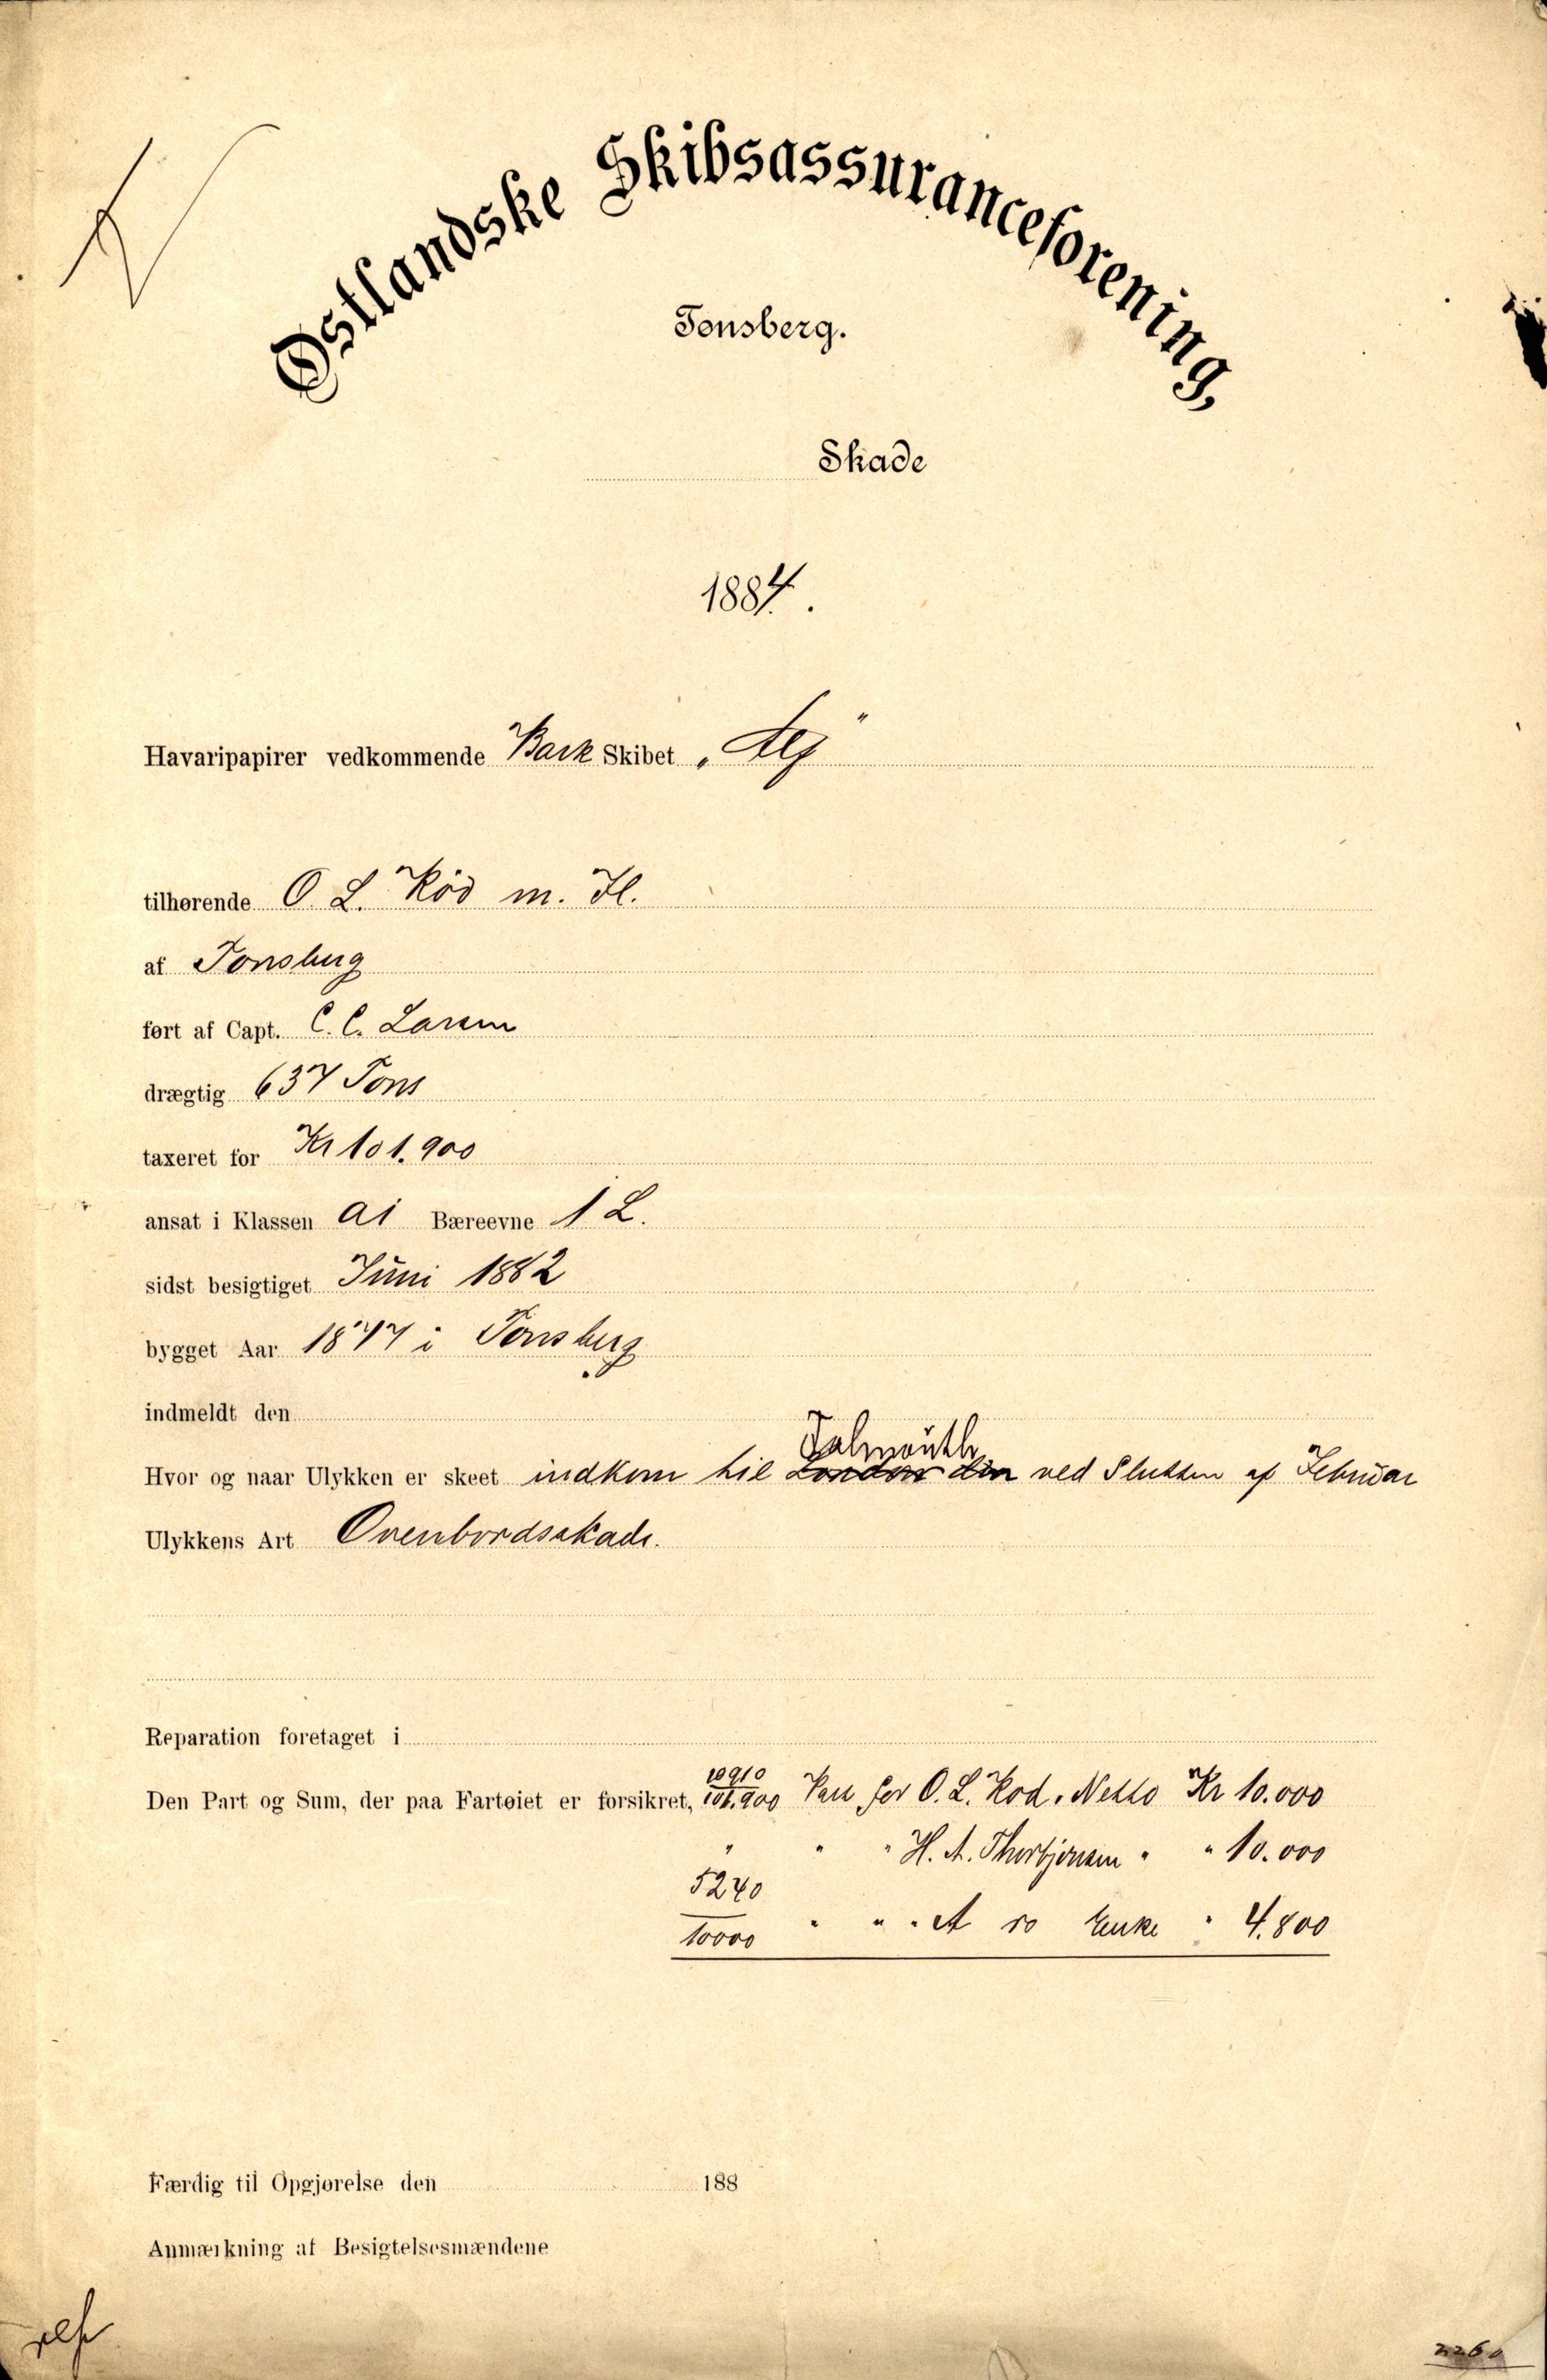 Østlandske Skibsassuranceforening,
Tønsberg.
Skade
1884.
Havaripapirer vedkommende Bark Skibet „Leif"
tilhørende O. L. Röd m. Fl.
af Tönsberg
ført af Capt. C. C. Larsen
drægtig 637 Tons
taxeret for Kr 101.900
ansat i Klassen A1 Bæreevne 1 L.
sidst besigtiget Juni 1882
bygget Aar 1877 i Tönsberg
indmeldt den
Falmouth
Hvor og naar Ulykken er skeet indkom til London den ved Slutten af Februar
Ulykkens Art Ovenbordsskade.
Reparation foretaget i
10910
Den Part og Sum, der paa Fartøiet er forsikret, 101.900 Part for O. L. Rod. Netto Kr 10.000
" " " H. A. Thorbjörnsen " " 10.000
5240
10000 " " " A Enke " 4.800
Færdig til Opgjørelse den 188
Anmærkning af Besigtelsesmændene
2260